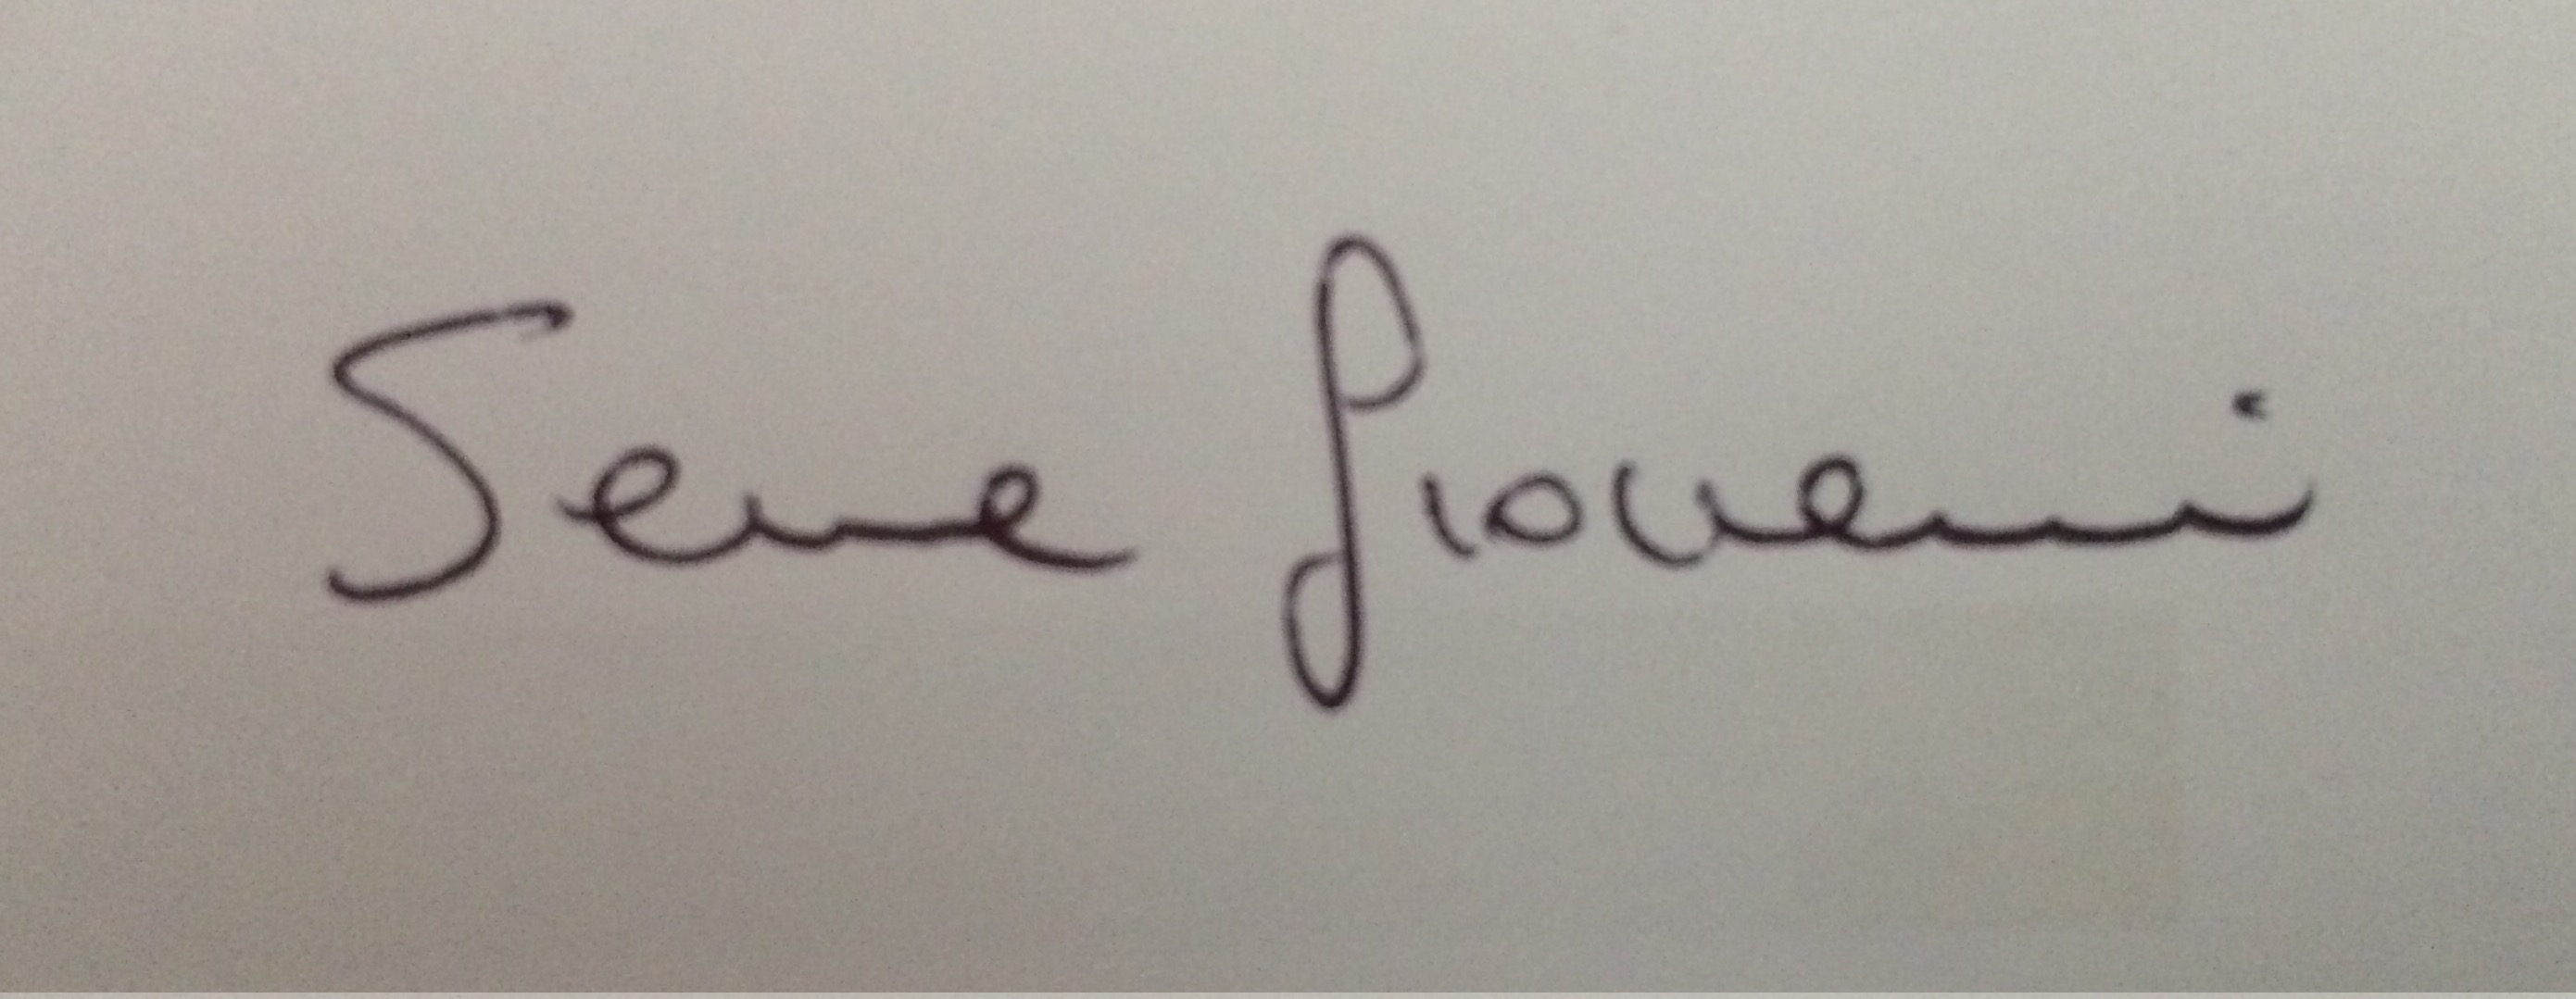 Serra Giovanni